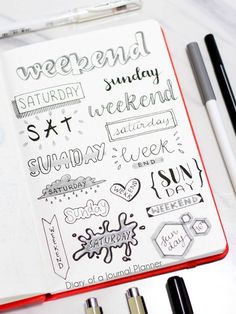 weekend
SATURDAY
sunday
SAT
weekend
saturday
SUNDAY
week
END
SATURDAY
WEEKEND
{SUN
DAY}
sunday
WEEKEND
WEEKEND
SATURDAY
Sun
day
Diary of a Journal Planner